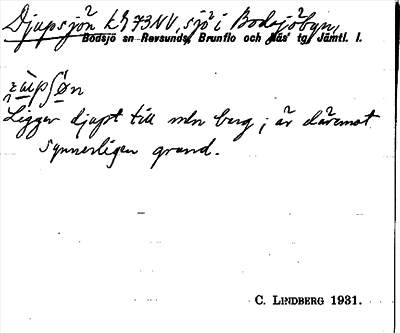 Djupsjön k 973NV, sjö i Bodsjöbyn,
Bodsjö sn Revsunds, Brunflo och Näs' tg Jämtl. l.
Ligger djupt till mln berg; är däremot
synnerligen grund.
C. LINDBERG 1931.